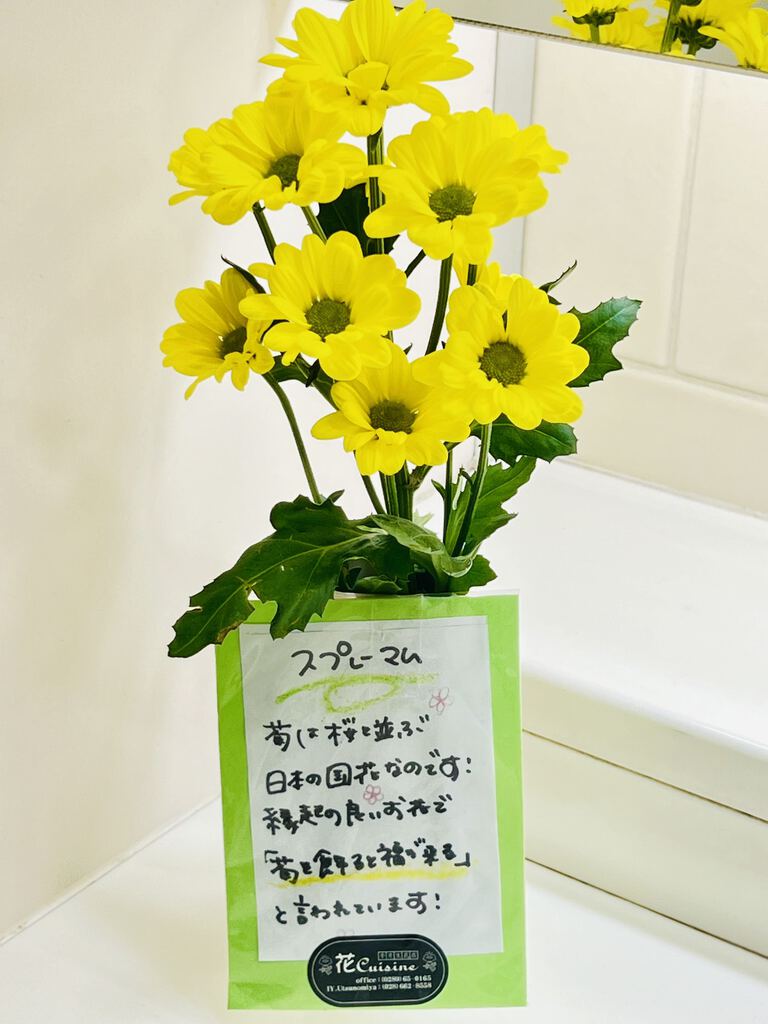 スプレーマム
菊は桜と並ぶ
日本の国花なのです!
縁起の良いお花で
「菊を飾ると福が来る」
と言われています!
花Cuisine
office : (0289) 65-0165
IY.Utsunomiya : (028) 662-8558